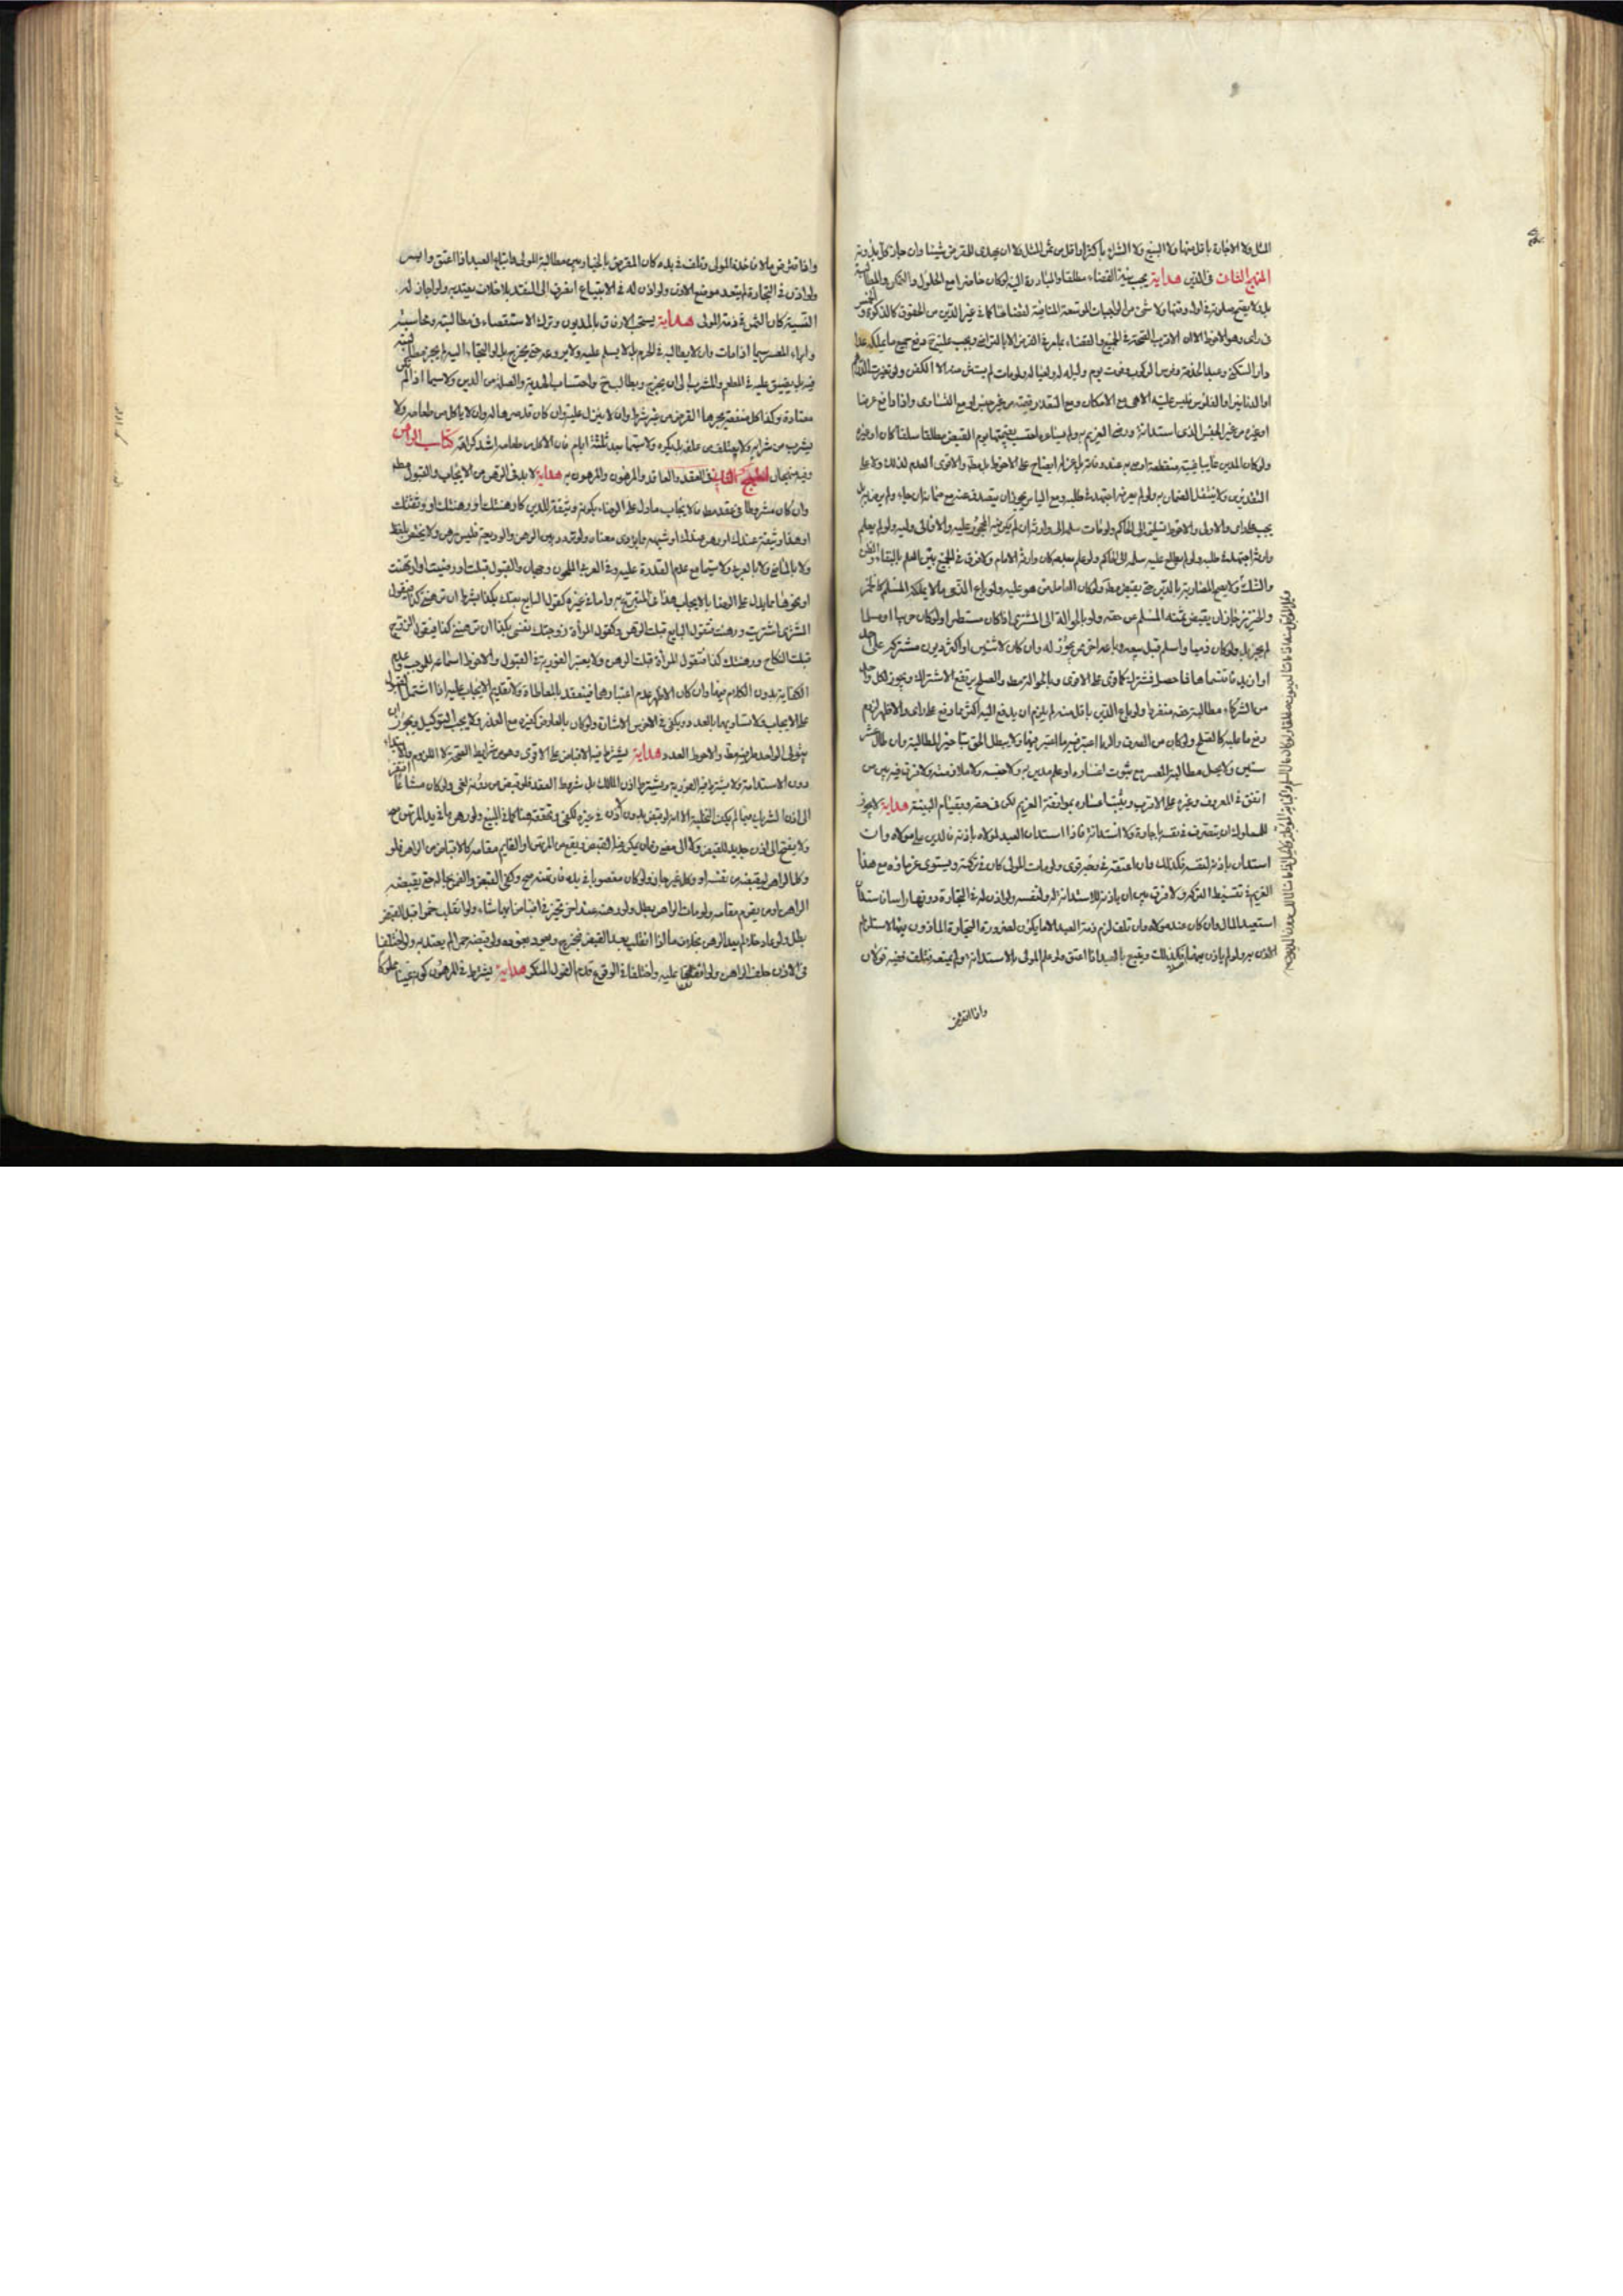 المثل ولا الاجارة باقل منها ولا البيع ولا الشراء باكثر او اقل من ثمن المثل ولا ان يهدى للمقرض شيئا وان جاز كل بدونه
المنهج الثانى فى الدين هداية يجب نية القضاء مطلقا والمبادرة اليه لو كان حاضرا مع الحلول والتمكن والمطالبة
بل قد لا يصح صلوته فى اول وقتها ولا شئ من الواجبات الموسعة المنافية لقضائه كما فى غير الدين من الحقوق كالزكوة والخمس
فى راى وهو الاحوط الا ان الاقرب الصحة فى الجميع والقضاء
دار السكنى وعبد الخدمة وفرس الركوب وقوت يوم وليلة له ولعياله ولو مات لم يستثن منه الا الكفن ولو تعذرت الدراهم
او الدنانير او الفلوس فليس عليه الا هى مع الامكان ومع التعذر قيمته من غير جنس لو مع التساوى واذا دفع عرضا
او غيره من غير الجنس الذى استدانه ورضى الغريم به ولم يساعره احتسب بقيمتها يوم القبض مطلقا سلفا كان او غيره
ولو كان المدين غايبا غيبة منقطعة اوصى به عند وفاته بل عزله ايضا على الاحوط بل مطلقا والاقوى العدم لذلك ولا على
التقديرين ولا ينتقل الضمان به ولو لم يعرفه اجتهد فى طلبه ومع الياس يجوز ان يتصدق عنه مع ضمانه ان جاء ولم يرض به بل
يجب على راى والاولى والاحوط تسليمه الى الحاكم ولو مات سلمه الى وارثه ان لم يكن فيه المحجور عليه والا فالى وليه ولو لم يعلم
وارثه اجتهد فى طلبه ولو لم يطلع عليه سلمه الى الحاكم ولو علم بعدمه كان وارثه الامام ولا فرق فى الجميع بين العلم بالبقاء والظن
والشك ولا يصح المضاربة بالدين حتى يقبض مطلقا ولو كان العامل من هو عليه ولو باع الذمى ما لا يملكه المسلم كالخمر
والخنزير جاز ان يقبض ثمنه المسلم من حقه ولو بالحوالة الى المشترى اذا كان مستترا ولو كان حربيا او مسلما
لم يجز بل ولو كان ذميا واسلم قبل بيعه وباعه اخر ممن يجوز له وان كان لاثنين او اكثر ديون مشتركة على واحد
او ازيد فاقتسماها فما حصل فمشترك كما توى على الاقوى وبالحوالة مطلقا والصلح يرتفع الاشتراك ويجوز لكل واحد
من الشركاء مطالبة حقه منفردا ولو باع الدين باقل منه لم يلزم ان يدفع اليه اكثر مما دفع على راى والاظهر لزوم
دفع ما عليه كالصلح ولو كان من الصرف والربا اعتبر فيه ما اعتبر فيهما ولا يبطل الحق بتاخير المطالبة وان طال عشر
سنين ولا يحل مطالبة المعسر مع ثبوت اعساره او علم مدينه به ولا حبسه ولا ملازمته ولا فرق فيه بين من
انفق فى المعروف وغيره على الاقرب ويثبت اعساره بموافقة الغريم لكن فى حقه وبقيام البينة هداية لا يجوز
للمملوك ان يتصرف فى نفسه باجارة ولا استدانة فاذا استدان العبد لمولاه باذنه فالدين على مولاه وان
استدان باذنه لنفسه فكذلك وان اعتقه فى وجه قوى ولو مات المولى كان فى تركته ويستوى غرماؤه مع هذا
الغريم فى تقسيط التركة ولا فرق بين ان ياذن للاستدانة له ولنفسه ولو اذن له فى التجارة دونها راسا فاستدان
استعيد المال وان كان عند مولاه وان تلف لزم ذمة العبد الا ما يكون لضرورة التجارة الماذون فيها لاستلزام
الاذن به ولو لم ياذن بهما فكذلك ويتبع بالعبد اذا اعتق ولو علم المولى بالاستدانة ولم يمنعه فتلف ففيه قولان
واذا اقترض
واذا اقترض مالا فاخذه المولى وتلف فى يده كان المقرض بالخيار بين مطالبة المولى واتباع العبد اذا اعتق وايسر
ولو اذن فى التجارة لم يتعد موضع الاذن ولو اذن له فى الابتياع انصرف الى النقد بلا خلاف يعتد به ولو اجاز له
النسية كان الثمن فى ذمة المولى هداية يستحب الارفاق بالمديون وترك الاستقصاء فى مطالبته ومحاسبته
وابراء المعسر سيما اذا مات وان لا يطالبه فى الحرم بل لا يسلم عليه ولا يروعه حتى يخرج بل لو التجاء اليه لم يجز مطالبته
فيه بل يضيق عليه فى المطعم والمشرب الى ان يخرج ويطالب ح واحتساب الهدية والصلة من الدين ولا سيما اذا لم تكن
معتادة وكذا كل منفعة يجرها القرض من غير شرط وان لا ينزل عليه وان كان قدصرها له وان لا ياكل من طعامه ولا
يشرب من شرابه ولا يعتلف من علفه بل يكره ولا سيما بعد ثلثة ايام فان الاكل من طعامه اشد كراهة كتاب الرهن
وفيه منهجان المنهج الاول فى العقد والعاقد والمرهون والمرهون به هداية لا بد فى الرهن من الايجاب والقبول مطلقا
وان كان مشروطا فى عقد مطلقا فالايجاب ما دل على الرضاء بكونه وثيقة للدين كارهنتك او رهنتك او وثقتك
او هذا وثيقة عندك او رهن عندك او شبهه مما يؤدى معناه ولو تردد بين الرهن والوديعة فليس برهن ولا يختص بلفظ
ولا بالماضى ولا بالعربية ولا سيما مع عدم القدرة عليه وفى العربى الملحون وجهان والقبول قبلت او رضيت او ارتهنت
او نحوها مما يدل على الرضا بالايجاب هذا فى المتبرع به واما فى غيره كقول البايع بعتك بكذا بشرط ان ترهننى كذا فيقول
المشترى اشتريت ورهنت فيقول البايع قبلت الرهن وكقول المراة زوجتك نفسى بكذا ان ترهننى كذا فيقول الزوج
قبلت النكاح ورهنتك كذا فتقول المراة قبلت الرهن ولا يعتبر الفورية فى القبول والاحوط اسماعه للموجب وعدم
الكفاية بدون الكلام فيها وان كان الاظهر عدم اعتبارهما فينعقد بالمعاطاة ولا تقديم الايجاب عليه اذا اشتمل القبول
على الايجاب ولا تساويهما بالعدد ويكفى فى الاخرس الاشارة ولو كان بالعارض كغيره مع العذر ولا يجب التوكيل ويجوز ان
يتولى الواحد طرفيه مطلقا والاحوط العدد هداية يشترط فيه الاقباض على الاقوى وهو من شرايط الصحة لا اللزوم والابتداء
دون الاستدامة ولا يشترط فيه الفورية ويشترط اذن المالك بل شروط العقد فلو قبض من دونه لغى ولو كان مشاعا افتقر
الى اذن الشريك فيما لم يكن التخلية الا انه لو قبض بدون اذن فى غيره لكفى فى تحققه هنا كما فى البيع ولو رهن ما فى يد المرتهن صح
ولا يفتقر الى اذن جديد للقبض ولا الى مضى زمان يمكن فيه القبض ويقع من المرتهن او القايم مقامه كالاقباض من الراهن فلو
وكل الراهن ليقبضه من نفسه او وكل غيره جاز ولو كان مغصوبا فى يده فارتهنه صح وكفى القبض والضمان بحاله حتى يقبضه
الراهن او من يقوم مقامه ولو مات الراهن بطل ولو رهنه عند اخر تخير فى اقباض ايهما شاء ولو انقلب خمرا قبل القبض
بطل ولو عاد خلا لم يعد الرهن بخلاف ما اذا انقلب بعد القبض فيخرج ويعود بعوده ولو قبضه خمرا لم يعتد به ولو اختلفا
فى الاذن حلف الراهن ولو اتفقا عليه واختلفا فى الوقوع قدم القول المنكر هداية يشترط فى المرهون كونه عينا مملوكا